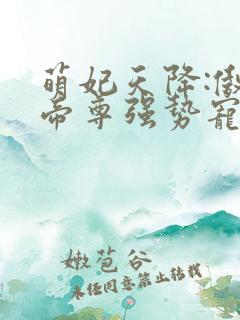 萌妃天降:傲
帝尊强势宠
嫩苞谷
未经同意禁止转载